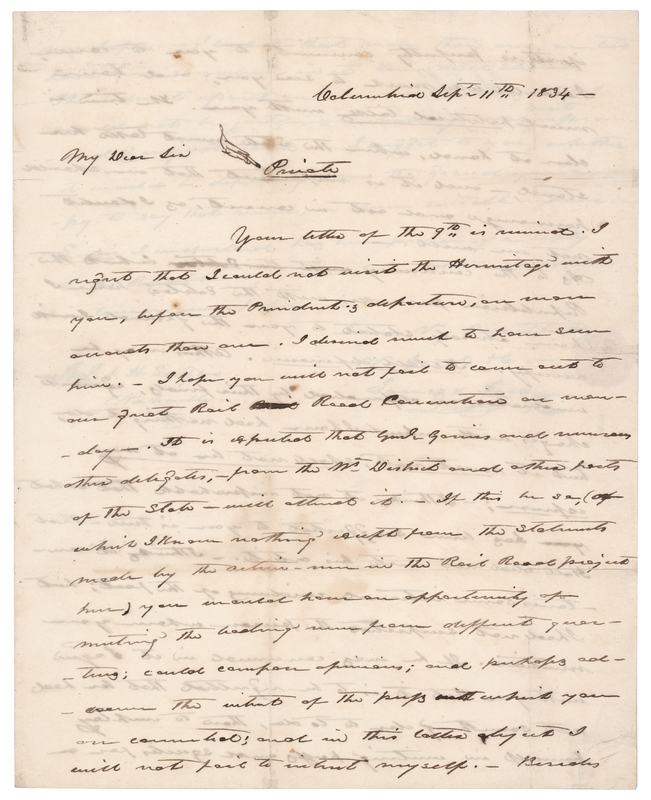 Columbia Sepr 11th 1834 —
My Dear Sir
Private
Your letter of the 9th is received. I
regret that I could not visit the Hermitage with
you, before the President's departure, on more
accounts than one. I desired much to have seen
him. — I hope you will not fail to come out to
our great Rail Road Convention on mon-
-day —. It is expected that Genl. Gaines and numerous
other delegates, — from the Wn. District and other parts
of the State — will attend it. — If this be so (of
which I know nothing except from the statements
made by the active men in the Rail Road project
here) you would have an opportunity of
meeting the leading men from different quar-
-ters; could compare opinions; and perhaps ad-
-vance the interest of the press with which you
are connected; and in this latter object I
will not fail to interest myself. — Besides